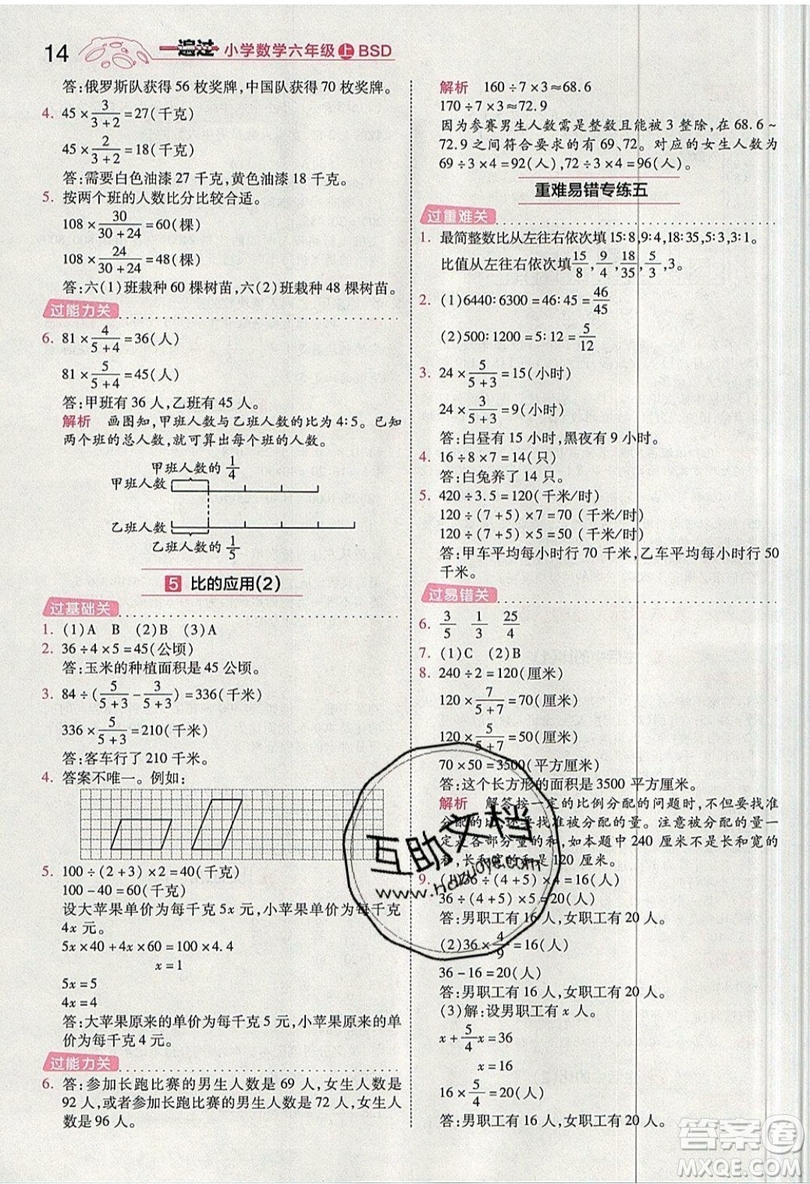 14 一遍过 小学数学六年级 上 BSD
答:俄罗斯队获得 56 枚奖牌,中国队获得 70 枚奖牌。
4. 45×3/(3+2)=27(千克)
45×2/(3+2)=18(千克)
答:需要白色油漆 27 千克,黄色油漆 18 千克。
5. 按两个班的人数比分比较合适。
108×30/(30+24)=60(棵)
108×24/(30+24)=48(棵)
答:六(1)班栽种 60 棵树苗,六(2)班栽种 48 棵树苗。
过能力关
6. 81×4/(5+4)=36(人)
81×5/(5+4)=45(人)
答:甲班有 36 人,乙班有 45 人。
解析 画图知,甲班人数与乙班人数的比为 4∶5。已知
两个班的总人数,就可算出每个班的人数。
甲班人数的1/4
甲班人数
乙班人数
乙班人数的1/5
5 比的应用(2)
过基础关
1. (1)A B (2)B (3)A
2. 36÷4×5=45(公顷)
答:玉米的种植面积是 45 公顷。
3. 84÷(5/(5+3)-3/(5+3))=336(千米)
336×5/(5+3)=210(千米)
答:客车行了 210 千米。
4. 答案不唯一。例如:
5. 100÷(2+3)×2=40(千克)
100-40=60(千克)
设大苹果单价为每千克 5x 元,小苹果单价为每千克
4x 元。
5x×40+4x×60=100×4.4
x=1
5x=5
4x=4
答:大苹果原来的单价为每千克 5 元,小苹果原来的
单价为每千克 4 元。
过能力关
6. 答:参加长跑比赛的男生人数是 69 人,女生人数是
92 人,或者参加长跑比赛的男生人数是 72 人,女生
人数是 96 人。
解析 160÷7×3≈68.6
170÷7×3≈72.9
因为参赛男生人数需是整数且能被 3 整除,在 68.6~
72.9 中符合要求的有 69、72。对应的女生人数为
69÷3×4=92(人),72÷3×4=96(人)。
重难易错专练五
过重难关
1. 最简整数比从左往右依次填 15∶8,9∶4,18∶35,5∶3,3∶1。
比值从左往右依次填15/8,9/4,18/35,5/3,3。
2. (1)6440∶6300=46∶45=46/45
(2)500∶1200=5∶12=5/12
3. 24×5/(5+3)=15(小时)
24×3/(5+3)=9(小时)
答:白昼有 15 小时,黑夜有 9 小时。
4. 16÷8×7=14(只)
答:白兔养了 14 只。
5. 420÷3.5=120(千米/时)
120÷(7+5)×7=70(千米/时)
120÷(7+5)×5=50(千米/时)
答:甲车平均每小时行 70 千米,乙车平均每小时行 50
千米。
过易错关
6. 3/5 1/3 25/4
7. (1)C (2)B
8. 240÷2=120(厘米)
120×7/(5+7)=70(厘米)
120×5/(5+7)=50(厘米)
70×50=3500(平方厘米)
答:这个长方形的面积是 3500 平方厘米。
解析 解答按一定的比例分配的问题时,不仅要找准
分配的比,还要找准被分配的量。注意被分配的量一
定是各部分量的和,如本题中 240 厘米不是长和宽的
和,长和宽的和是 120 厘米。
9. (1)36÷(4+5)×4=16(人)
36÷(4+5)×5=20(人)
答:男职工有 16 人,女职工有 20 人。
(2)36×4/9=16(人)
36-16=20(人)
答:男职工有 16 人,女职工有 20 人。
(3)解:设男职工有 x 人。
x+5/4x=36
x=16
16×5/4=20(人)
答:男职工有 16 人,女职工有 20 人。
互助文档
www.hdzuoye.com
答案圈
MXQE.COM